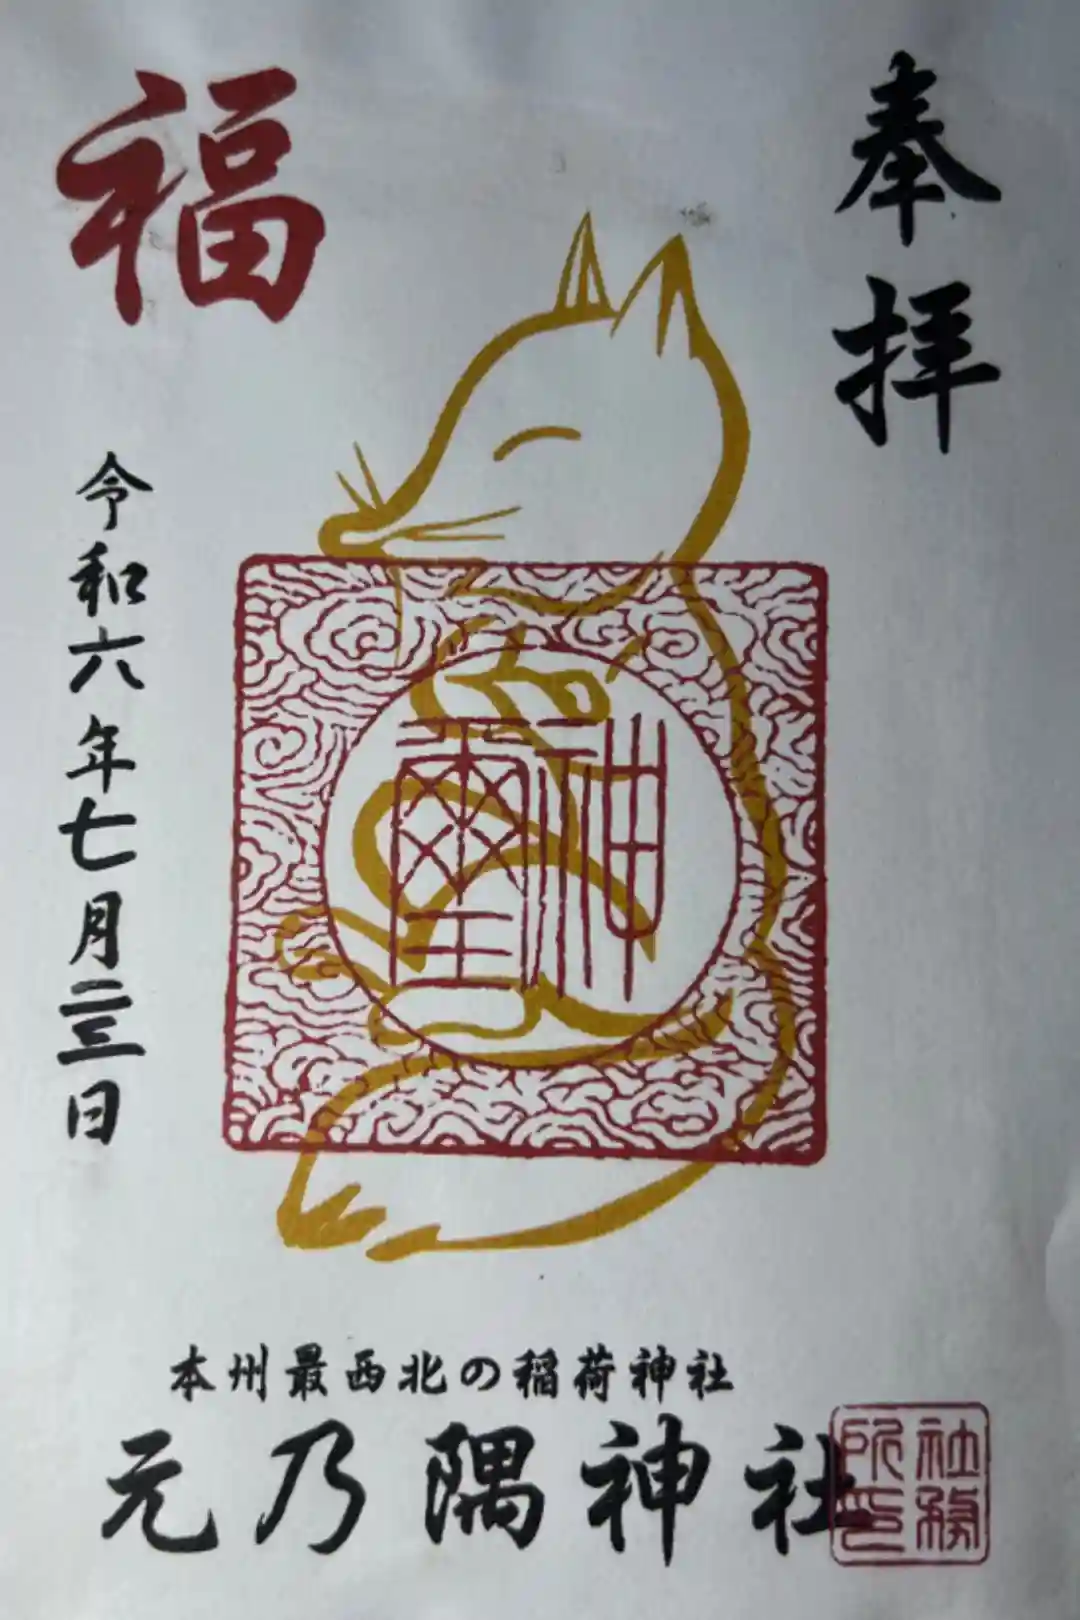 奉拝
福
令和六年七月二三日
神璽
本州最西北の稲荷神社
元乃隅神社
社務所印